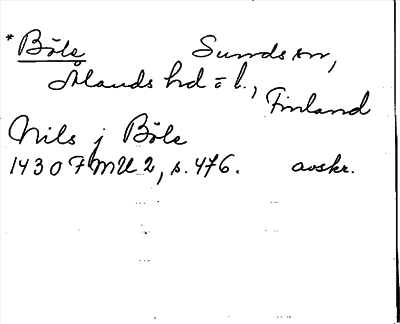 * Böle Sunds sn,
Ålands hd = l.,
Finland
Nils j Böle
1430 FMU 2, s. 476. avskr.